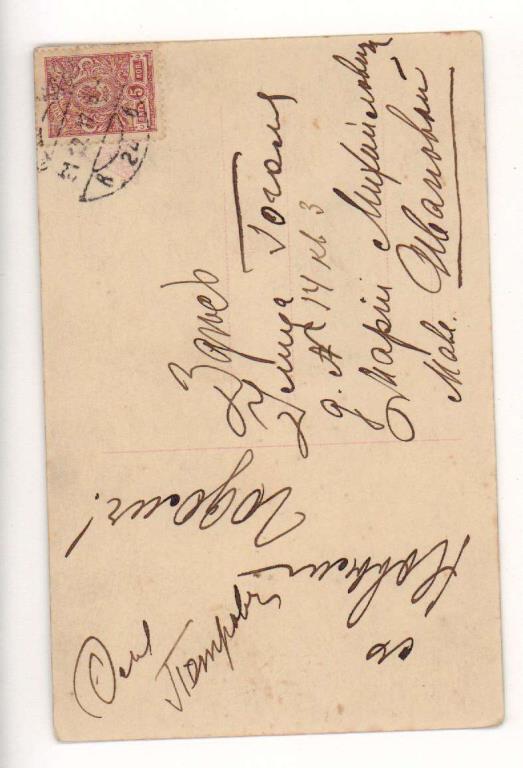 съ
Новымъ
Годомъ!
Оля
Петрова
Здѣсь
Улица Гоголя
д. № 14 кв 3
Маріи Михайловнѣ
Ивановой
5 КОП